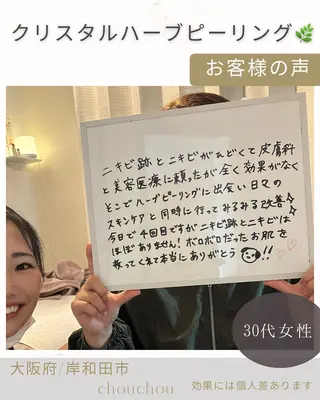 クリスタルハーブピーリング🌿
お客様の声
ニキビ跡とニキビがひどくて皮膚科
と美容医療に頼ったが全く効果がなく
そこでハーブピーリングに出会い日々の
スキンケアと同時に行ってみるみる改善✨
今日で4回目ですがニキビ跡とニキビは
ほぼありません!ボロボロだったお肌を
救ってくれて本当にありがとう!!
30代女性
大阪府/岸和田市
chouchou
効果には個人差あります